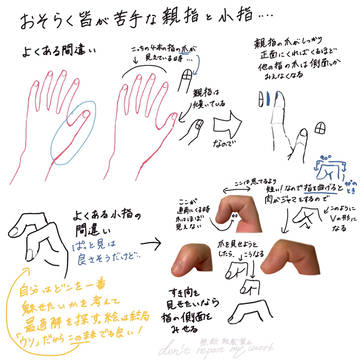 おそらく皆が苦手な親指と小指…
よくある間違い
こっちの4本の指の爪が
見えている時…
親指は
傾いている
なので
親指の爪がしっかり
正面にくればくるほど
他の指の爪は側面しか
みえなくなる
よくある小指の
間違い
ぱっと見は
良さそうだけど…
ここが
直角にくる時
爪はほぼ
見えない
ここは思ってるより
短い!なので指を曲げると
肉がジャマをするので
このように
Vの形に
なる
爪を見せようと
したら、こうなる
すき間を
見せたいなら
指の側面を
みせる
自分はどこを一番
魅せたいかを考えて
最適解を探す。絵は結局
「ウソ」だからこのままでも良い!
無断転載禁止
don't repost my work